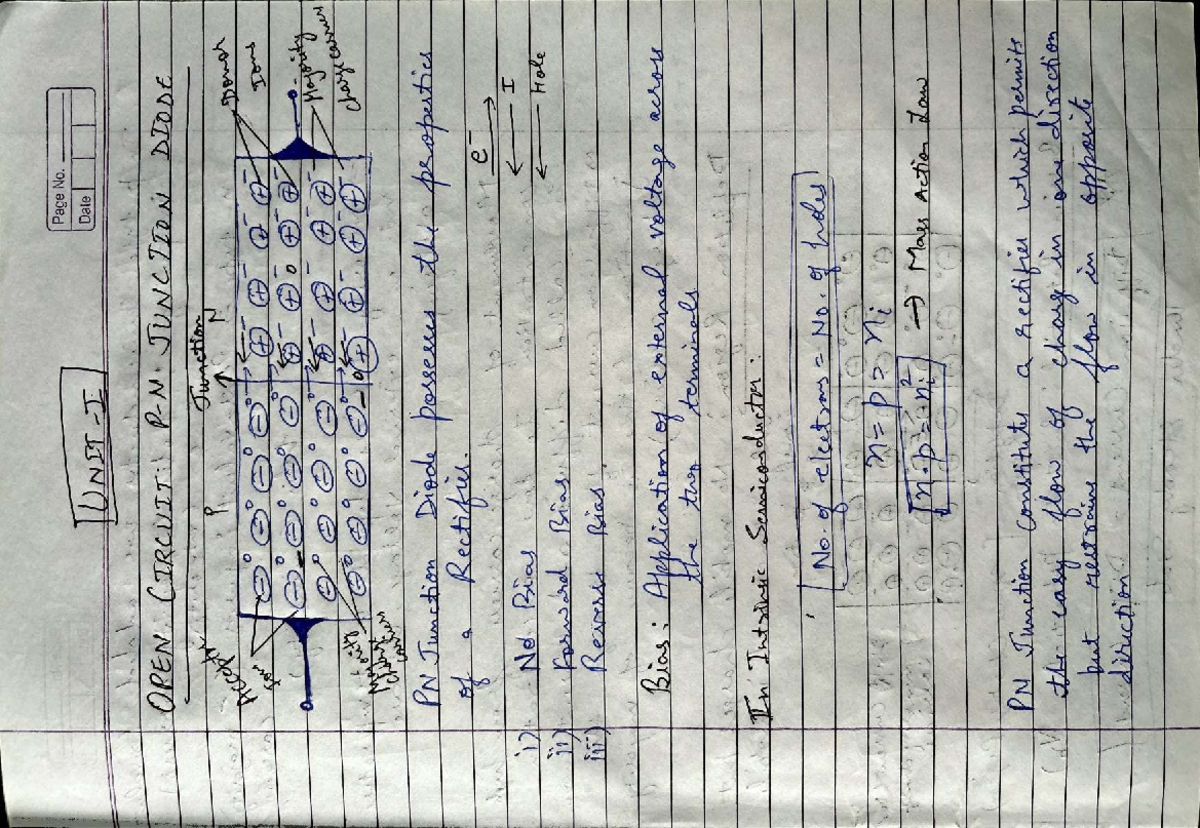 Page No.
Date
UNIT-I
OPEN CIRCUIT P-N JUNCTION DIODE
Junction
P
N
Donor
Ions
Majority
charge carrier
Acceptor
Ion
Majority
charge
carrier
PN Junction Diode possesses the properties
of a Rectifier.
e⁻
I
Hole
i) No Bias
ii) Forward Bias
iii) Reverse Bias
Bias: Application of external voltage across
the two terminals
In Intrinsic Semiconductor:
No. of electrons = No. of holes
n = p = ni
n.p = ni² → Mass Action Law
PN Junction constitute a rectifier which permits
the easy flow of charge in one direction
but restrains the flow in opposite
direction